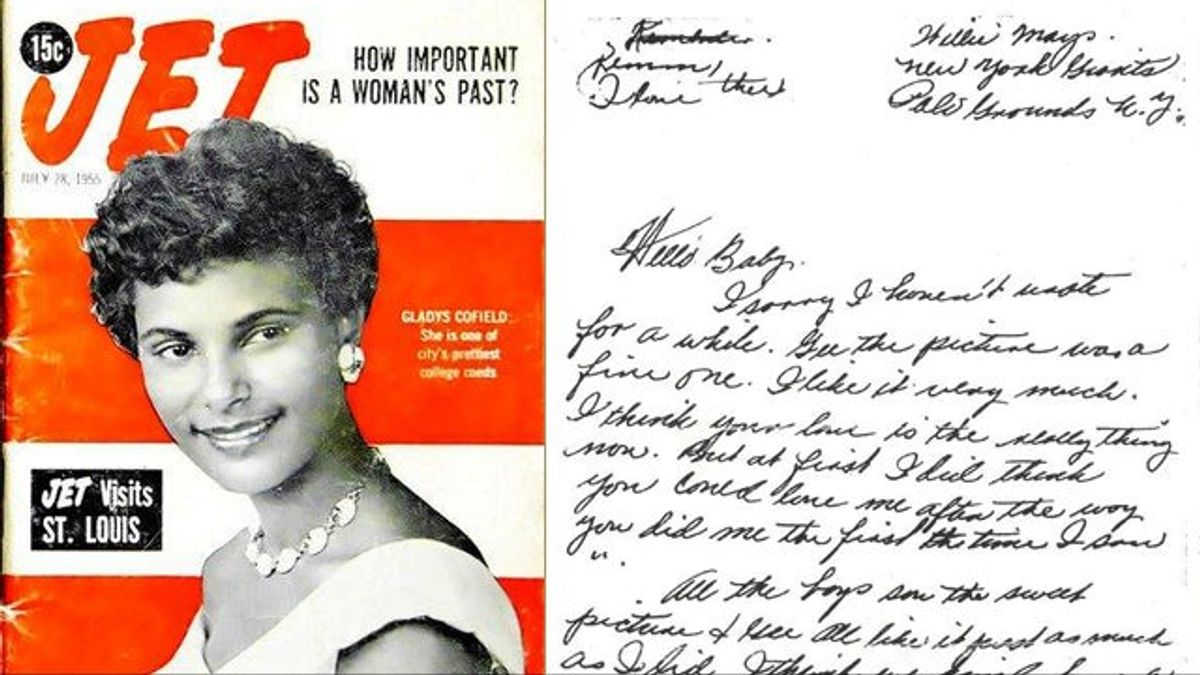 15c
JET
HOW IMPORTANT
IS A WOMAN'S PAST?
JULY 28, 1955
GLADYS COFIELD:
She is one of
city's prettiest
college coeds
JET Visits
ST. LOUIS
Remember.
I love
Willie Mays.
New York Giants
Polo Grounds N.Y.
Hello Baby.
I sorry I haven't wrote
for a while. Gee the picture was a
fine one. I like it very much.
I think your love is the really thing
now. But at first I did think
you could love me after the way
you did me the first the time I saw
".
All the boys saw the sweet
picture & Gee all like it just as much
as I did. I think